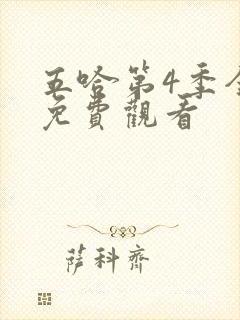 五哈第4季全
免費觀看
薩科齊